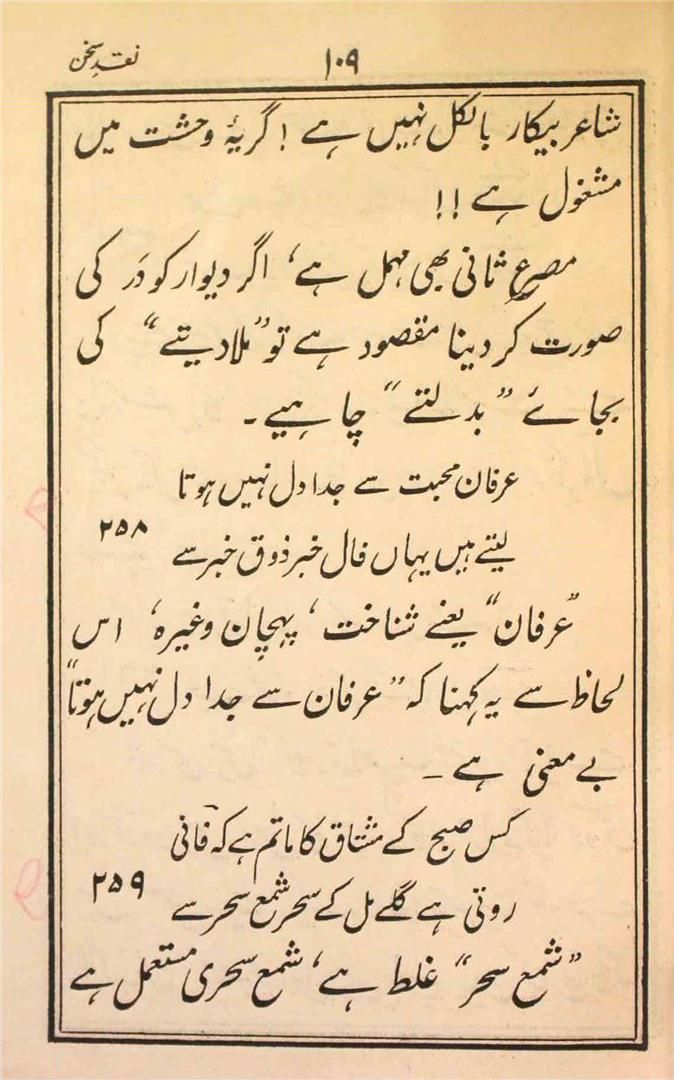 نقدِ سخن
۱۰۹
شاعر بیکار بالکل نہیں ہے ! گریۂ وحشت میں
مشغول ہے !!
مصرعِ ثانی بھی مہمل ہے، اگر دیوار کو دَر کی
صورت کر دینا مقصود ہے تو ”ملا دیتے“ کی
بجائے ”بدلتے“ چاہیے۔
عرفان محبت سے جدا دل نہیں ہوتا
لیتے ہیں یہاں فال خبر ذوق خبر سے
۲۵۸
”عرفان“ یعنے شناخت، پہچان وغیرہ، اس
لحاظ سے یہ کہنا کہ ”عرفان سے جدا دل نہیں ہوتا“
بے معنی ہے ۔
کس صبح کے مشتاق کا ماتم ہے کہ فانی
روتی ہے گلے مل کے سحر شمع سحر سے
۲۵۹
”شمع سحر“ غلط ہے، شمع سحری مستعمل ہے